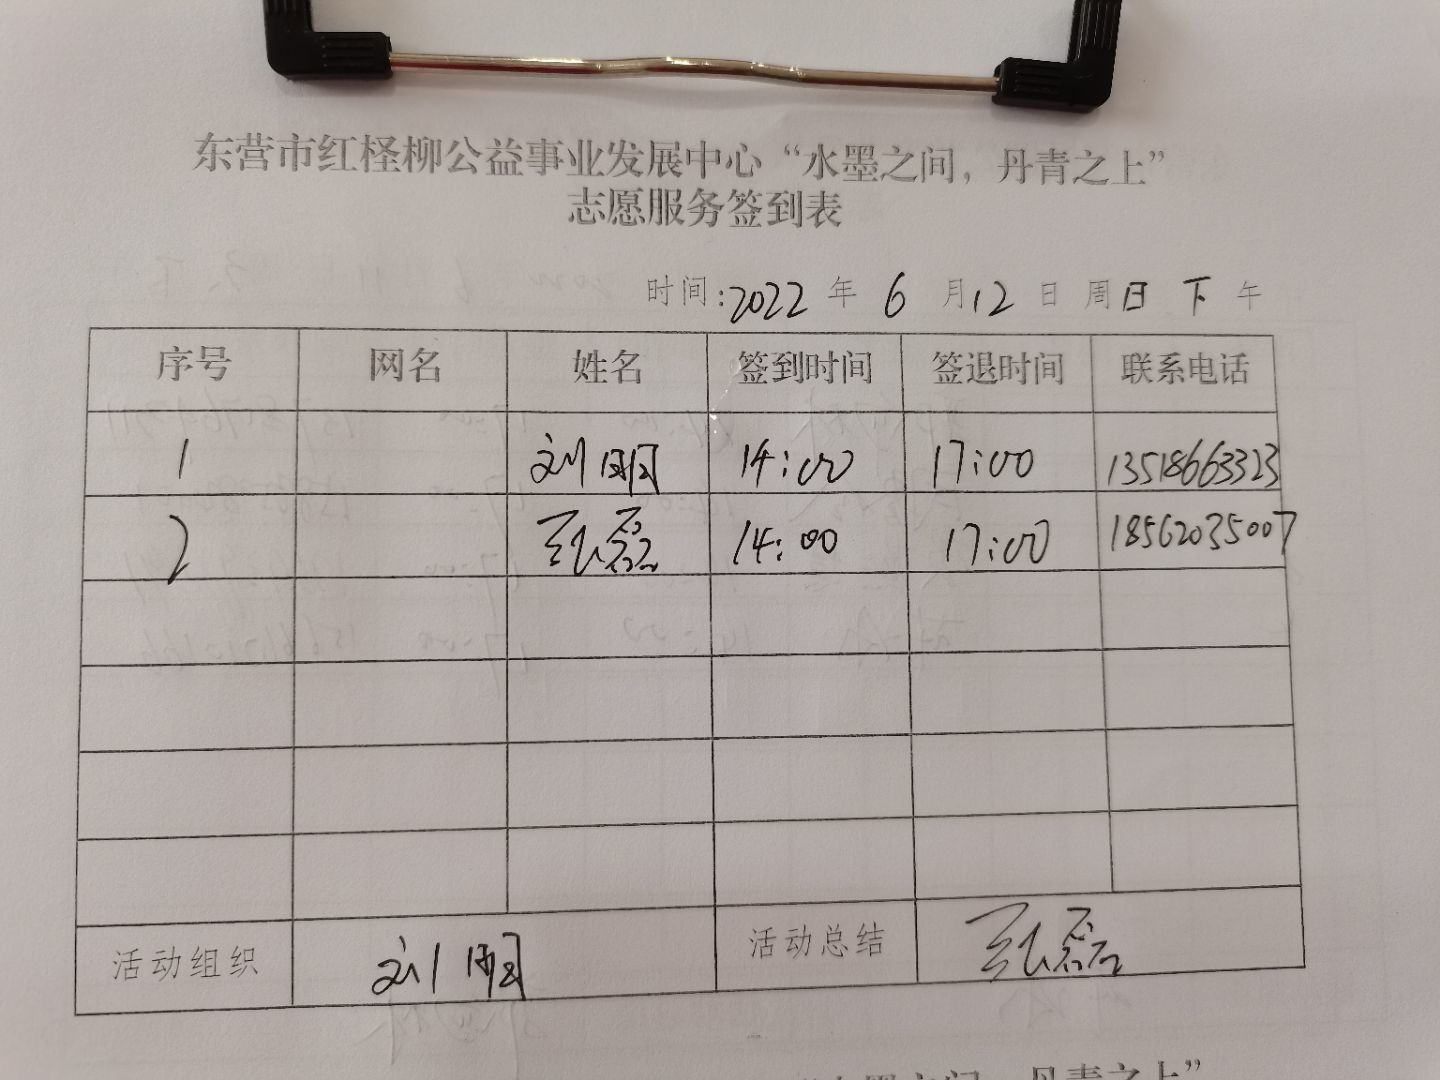 东营市红柽柳公益事业发展中心“水墨之间，丹青之上”
志愿服务签到表
时间：2022 年 6 月 12 日 周日 下 午
序号 网名 姓名 签到时间 签退时间 联系电话
1 刘明 14:00 17:00 13518663323
2 张磊 14:00 17:00 18562035007
活动组织 刘明 活动总结 张磊